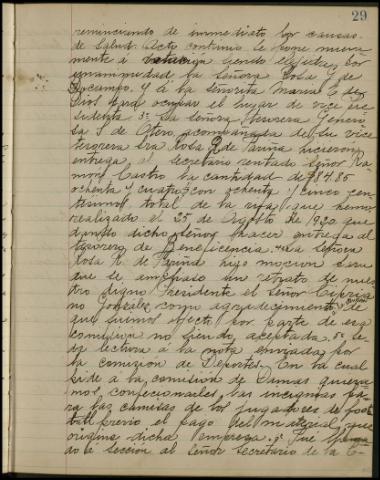 29
renunciando de inmediato por causas
de salud. Acto continuo se pone nueva-
mente á votación siendo elejida por
unanimidad la señora Rosa J de
Ocampo. Y á la señorita Maria E de
Dios para ocupar el lugar de vice Pre-
sidenta 3º La señora tesorera
S de Otero, acompañada de su vice
tesorera sra Rosa R de Pariña hicieron
entrega al secretario rentado señor Ra-
mon Castro la cantidad de $84.85
ochenta y cuatro con ochenta y cinco cen-
tavos total de la rifa que hemos
realizado el 25 de Agosto de 1930 que-
dando dicho señor hacer entrega al
tesorero de Beneficencia. La señora
Rosa R. de Pariña hizo mocion para
que se ampliase un retrato de nues-
tro digno Presidente el señor Cipria-
no González como agradecimiento de
que suimos objeto por parte de esa
comisión no siendo aceptada. Se
dá lectura á la nota enviada por
la comision de Deportes. En la cual
pide a la comisión de Damas quiera-
mos confeccionarles las insignias pa-
ra las camisas de los jugadores de foot
ball previo el pago del material que
origine dicha empresa. Fue
do á sección al señor secretario de la Co-